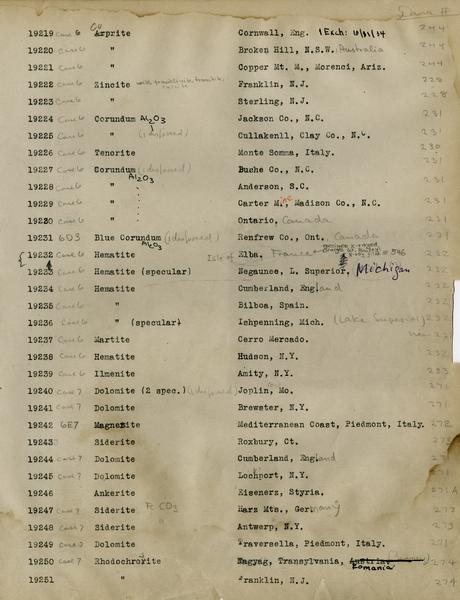 Dana #
19219 Case 6 Arprite Cu Cornwall, Eng. (Exch: 244
19220 Case 6 " Broken Hill, N.S.W. Australia 244
19221 Case 6 " Copper Mt. M., Morenci, Ariz. 244
19222 Case 6 Zincite with Franklin, N.J. 228
19223 Case 6 " Sterling, N.J. 228
19224 Case 6 Corundum Al2O3 Jackson Co., N.C. 231
19225 Case 6 " Cullakenll, Clay Co., N.C. 231
19226 Case 6 Tenorite Monte Somma, Italy. 230
19227 Case 6 Corundum Al2O3 Buche Co., N.C. 231
19228 Case 6 " Anderson, S.C. 231
19229 Case 6 " Carter Mine, Madison Co., N.C. 231
19230 Case 6 " Ontario. Canada 231
19231 6D3 Blue Corundum Al2O3 Renfrew Co., Ont. Canada 231
19232 Case 6 Hematite Isle of Elba. France 232
19233 Case 6 Hematite (specular) Negaunee, L. Superior, Michigan
19234 Case 6 Hematite Cumberland, England 232
19235 Case 6 " Bilboa, Spain. 232
19236 Case 6 " (specular) Ishpenning, Mich. (Lake Superior) 232
19237 Case 6 Martite Cerro Mercado.
19238 Case 6 Hematite Hudson, N.Y. 232
19239 Case 6 Ilmenite Amity, N.Y. 233
19240 Case 7 Dolomite (2 spec.) Joplin, Mo. 271
19241 Case 7 Dolomite Brewster, N.Y. 271
19242 6E7 Magnesite Mediterranean Coast, Piedmont, Italy. 272
19243 Siderite Roxbury, Ct. 273
19244 Case 7 Dolomite Cumberland, England 271
19245 Case 7 Dolomite Lockport, N.Y. 271
19246 Ankerite Eisenerz, Styria. 271A
19247 Case 7 Siderite FeCO3 Harz Mts., Germany 273
19248 Case 7 Siderite Antwerp, N.Y. 273
19249 Case 7 Dolomite Traversella, Piedmont, Italy. 271
19250 Case 7 Rhodochrosite Nagyag, Transylvania, Austria Romania 274
19251 " Franklin, N.J. 274